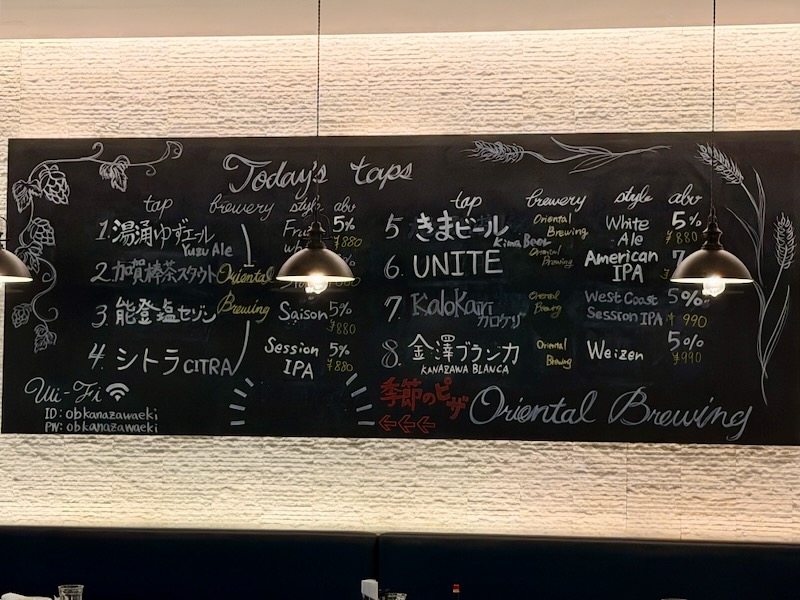 Today's taps
tap brewery style abv
1. 湯涌ゆずエール 5%
Yuzu Ale ¥880
2. 加賀棒茶スタウト Oriental
3. 能登塩セゾン Brewing Saison 5%
¥880
4. シトラ CITRA Session IPA 5%
¥880
Wi-Fi
ID: obkanazawaeki
PW: obkanazawaeki
tap brewery style abv
5 きまビール Oriental Brewing White Ale 5%
Kima Beer ¥880
6. UNITE Oriental Brewing American IPA
7. Kalokairi Oriental Brewing West Coast Session IPA 5%
カロケリ ¥990
8. 金澤ブランカ Oriental Brewing Weizen 5%
KANAZAWA BLANCA ¥990
季節のピザ
←←←
Oriental Brewing